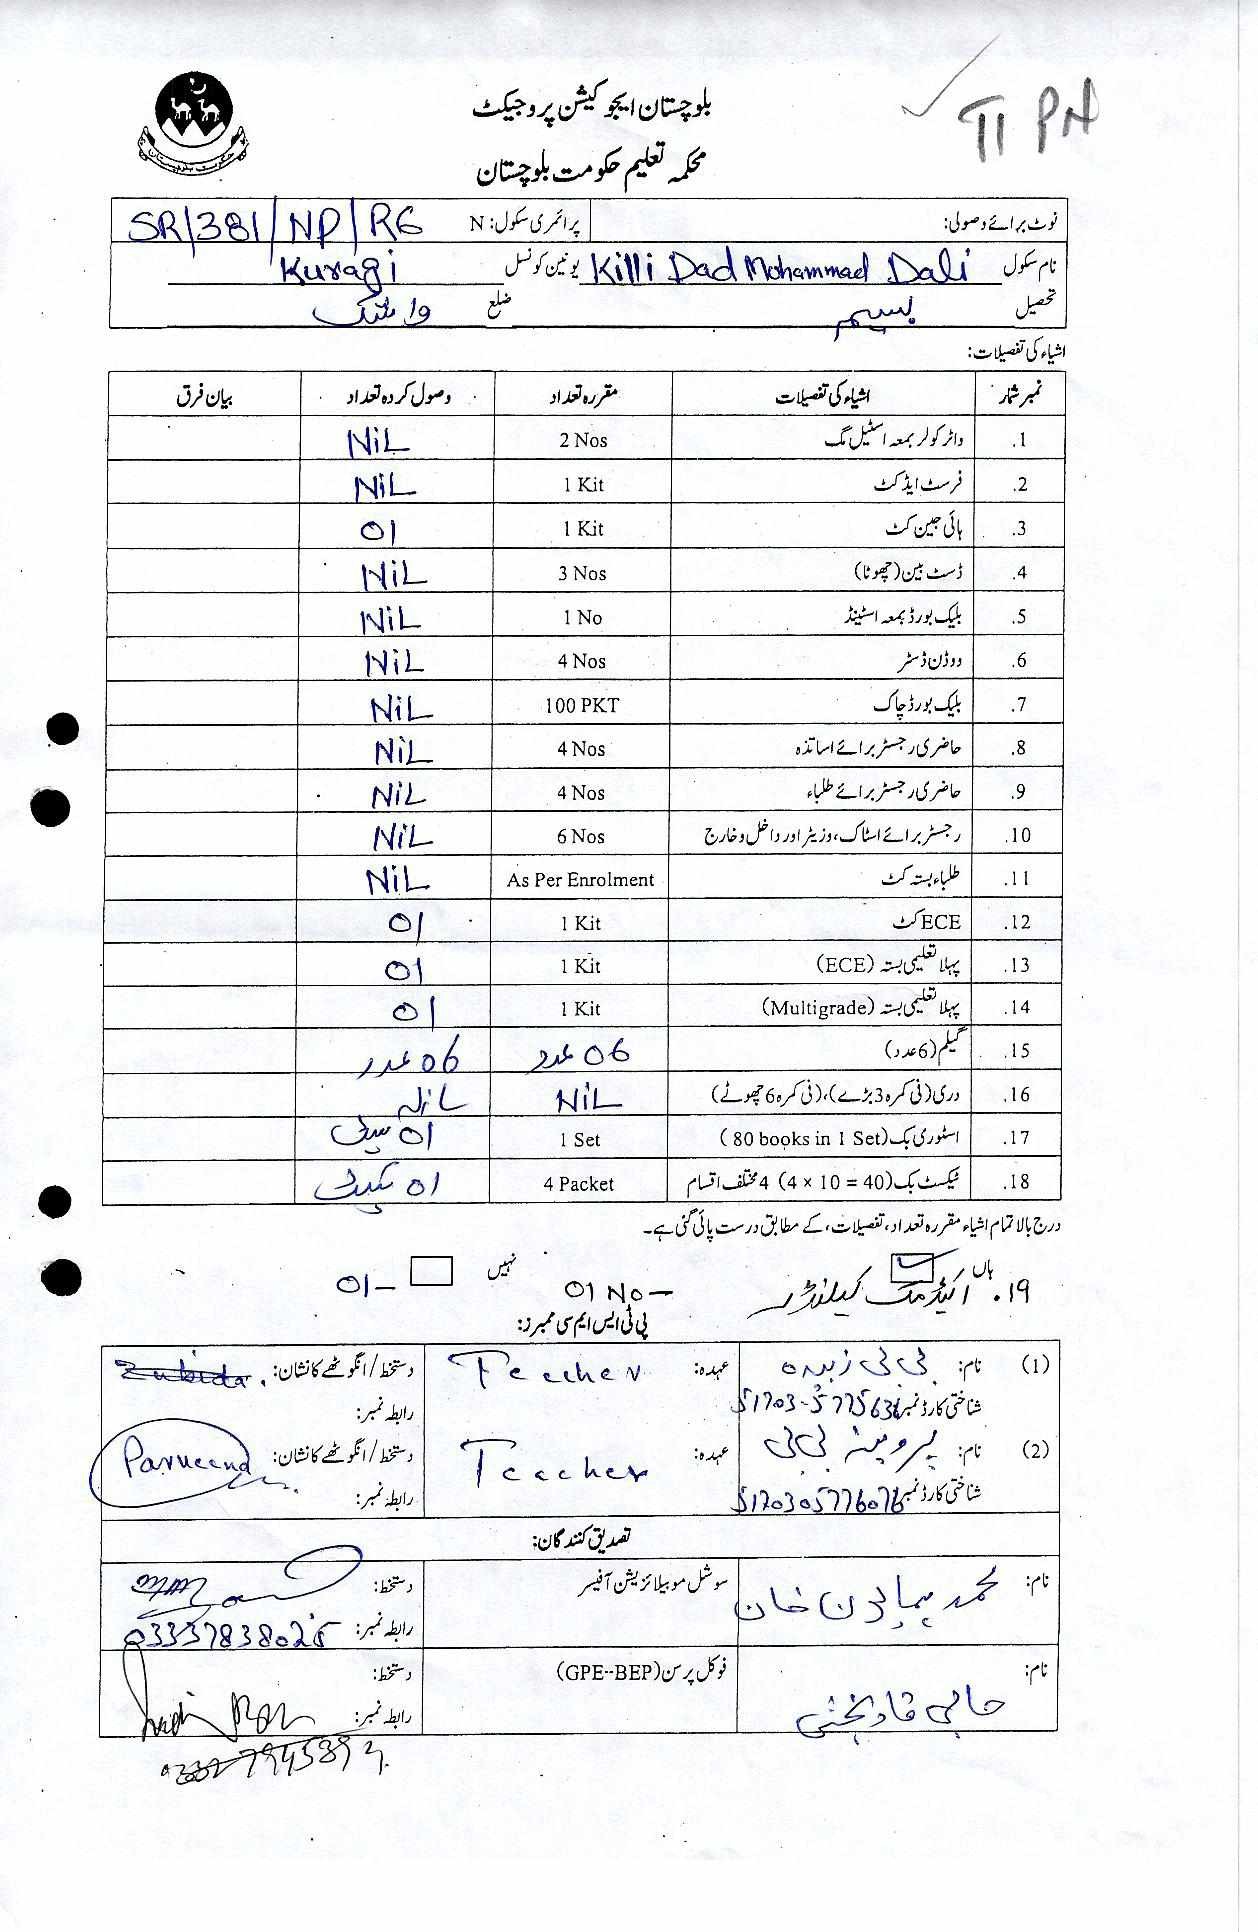 TI PN
بلوچستان ایجوکیشن پروجیکٹ
محکمہ تعلیم حکومت بلوچستان
نوٹ برائے وصولی: پرائمری سکول: N SR/381/NP/RG
نام سکول Killi Dad Mohammad Dali یونین کونسل Kuragi
تحصیل بسیمہ ضلع واشک
اشیاء کی تفصیلات:
نمبر شمار اشیاء کی تفصیلات مقررہ تعداد وصول کردہ تعداد بیان فرق
1. واٹر کولر بمعہ اسٹیل مگ 2 Nos NiL
2. فرسٹ ایڈ کٹ 1 Kit NiL
3. ہائی جین کٹ 1 Kit 01
4. ڈسٹ بین (چھوٹا) 3 Nos NiL
5. بلیک بورڈ بمعہ اسٹینڈ 1 No NiL
6. ووڈن ڈسٹر 4 Nos NiL
7. بلیک بورڈ چاک 100 PKT NiL
8. حاضری رجسٹر برائے اساتذہ 4 Nos NiL
9. حاضری رجسٹر برائے طلباء 4 Nos NiL
10. رجسٹر برائے اسٹاک، وزیٹر اور داخل و خارج 6 Nos NiL
11. طلباء بستہ کٹ As Per Enrolment NiL
12. ECE کٹ 1 Kit 01
13. پہلا تعلیمی بستہ (ECE) 1 Kit 01
14. پہلا تعلیمی بستہ (Multigrade) 1 Kit 01
15. گیلم (6 عدد) 06 عدد 06 عدد
16. دری (فی کمرہ 3 بڑے)، (فی کمرہ 6 چھوٹے) NiL
17. اسٹوری بک (80 books in 1 Set) 1 Set 01 سیٹ
18. ٹیکسٹ بک (4 x 10 = 40) 4 مختلف اقسام 4 Packet 01 پیکٹ
درج بالا تمام اشیاء مقررہ تعداد، تفصیلات، کے مطابق درست پائی گئی ہے۔
ہاں نہیں
۱۹. اکیڈمک کیلنڈر 01 No – 01 –
پی ٹی ایس ایم سی ممبرز:
(1) نام: بی بی زبیدہ عہدہ: Teacher دستخط / انگوٹھے کا نشان: Zubida.
شناختی کارڈ نمبر رابطہ نمبر:
(2) نام: پروینہ بی بی عہدہ: Teacher دستخط / انگوٹھے کا نشان: Parveena
شناختی کارڈ نمبر 5170305776076 رابطہ نمبر:
تصدیق کنندگان:
نام: محمد ہمایون خان سوشل موبیلائزیشن آفیسر دستخط:
رابطہ نمبر: 03337838025
نام: حاجی قادر بخش فوکل پرسن (GPE--BEP) دستخط:
رابطہ نمبر: